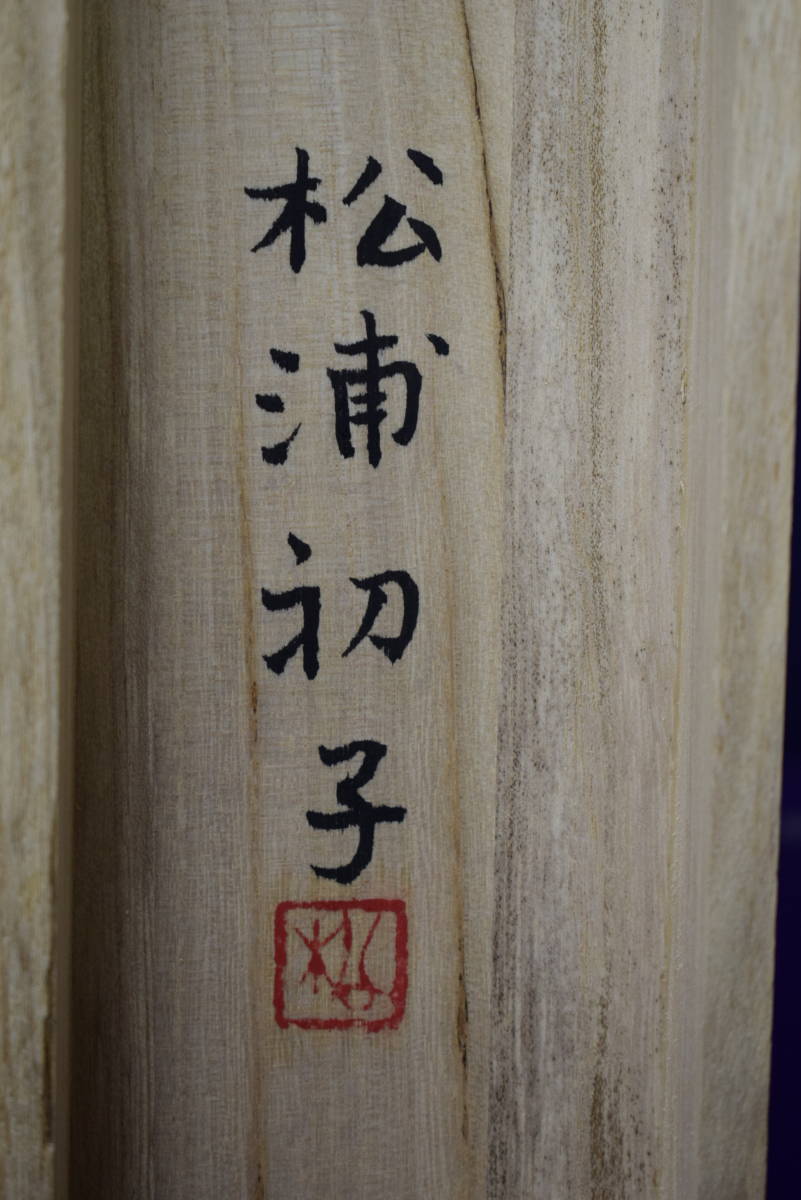 松浦初子
松